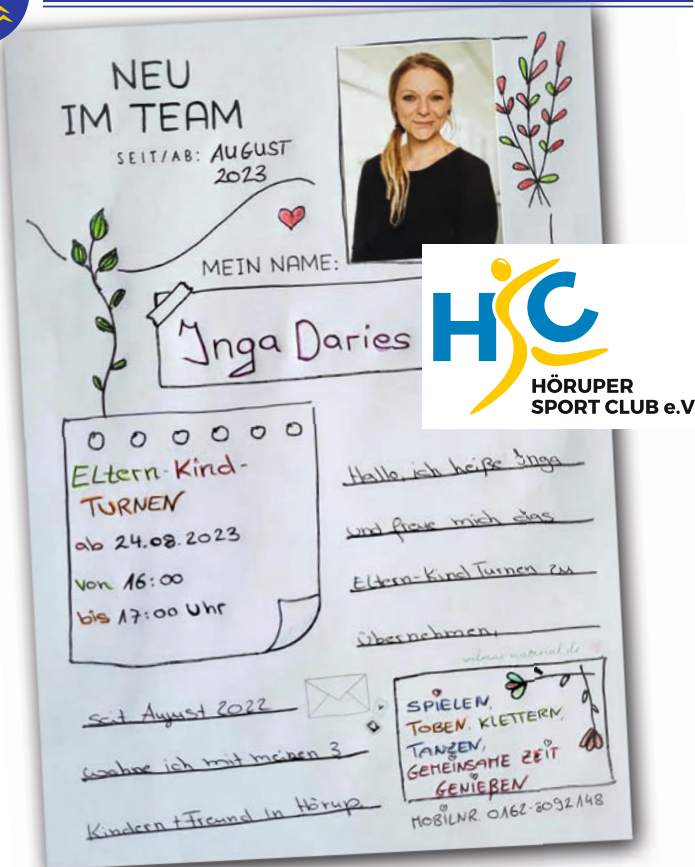 NEU
IM TEAM
SEIT/AB: AUGUST
2023
MEIN NAME:
Inga Daries
HSC
HÖRUPER
SPORT CLUB e.V
ELtern-Kind-
TURNEN
ab 24.08.2023
von 16:00
bis 17:00 Uhr
Hallo, ich heiße Inga
und freue mich das
Eltern-Kind Turnen zu
übernehmen,
wilmas-material.de
seit August 2022
wohne ich mit meinen 3
Kindern + Freund in Hörup
SPIELEN,
TOBEN, KLETTERN,
TANZEN,
GEMEINSAME ZEIT
GENIEßEN
MOBILNR. 0162-3092148